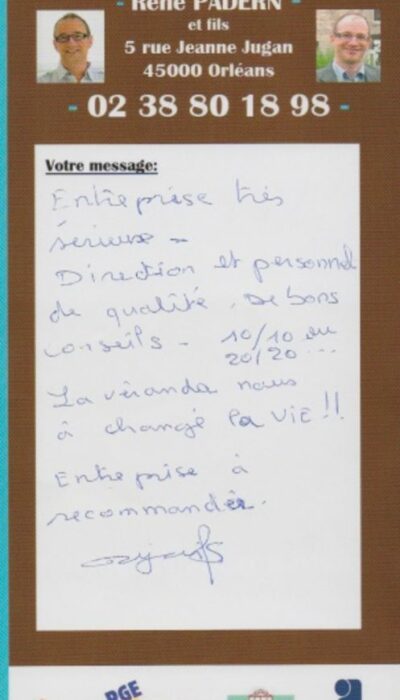 - René PADERN -
et fils
5 rue Jeanne Jugan
45000 Orléans
- 02 38 80 18 98 -
Votre message:
Entreprise très
sérieuse -
Direction et personnel
de qualité. De bons
conseils - 10/10 ou
20/20 ...
La véranda nous
à changé la vie !!
Entreprise à
recommander.
RGE